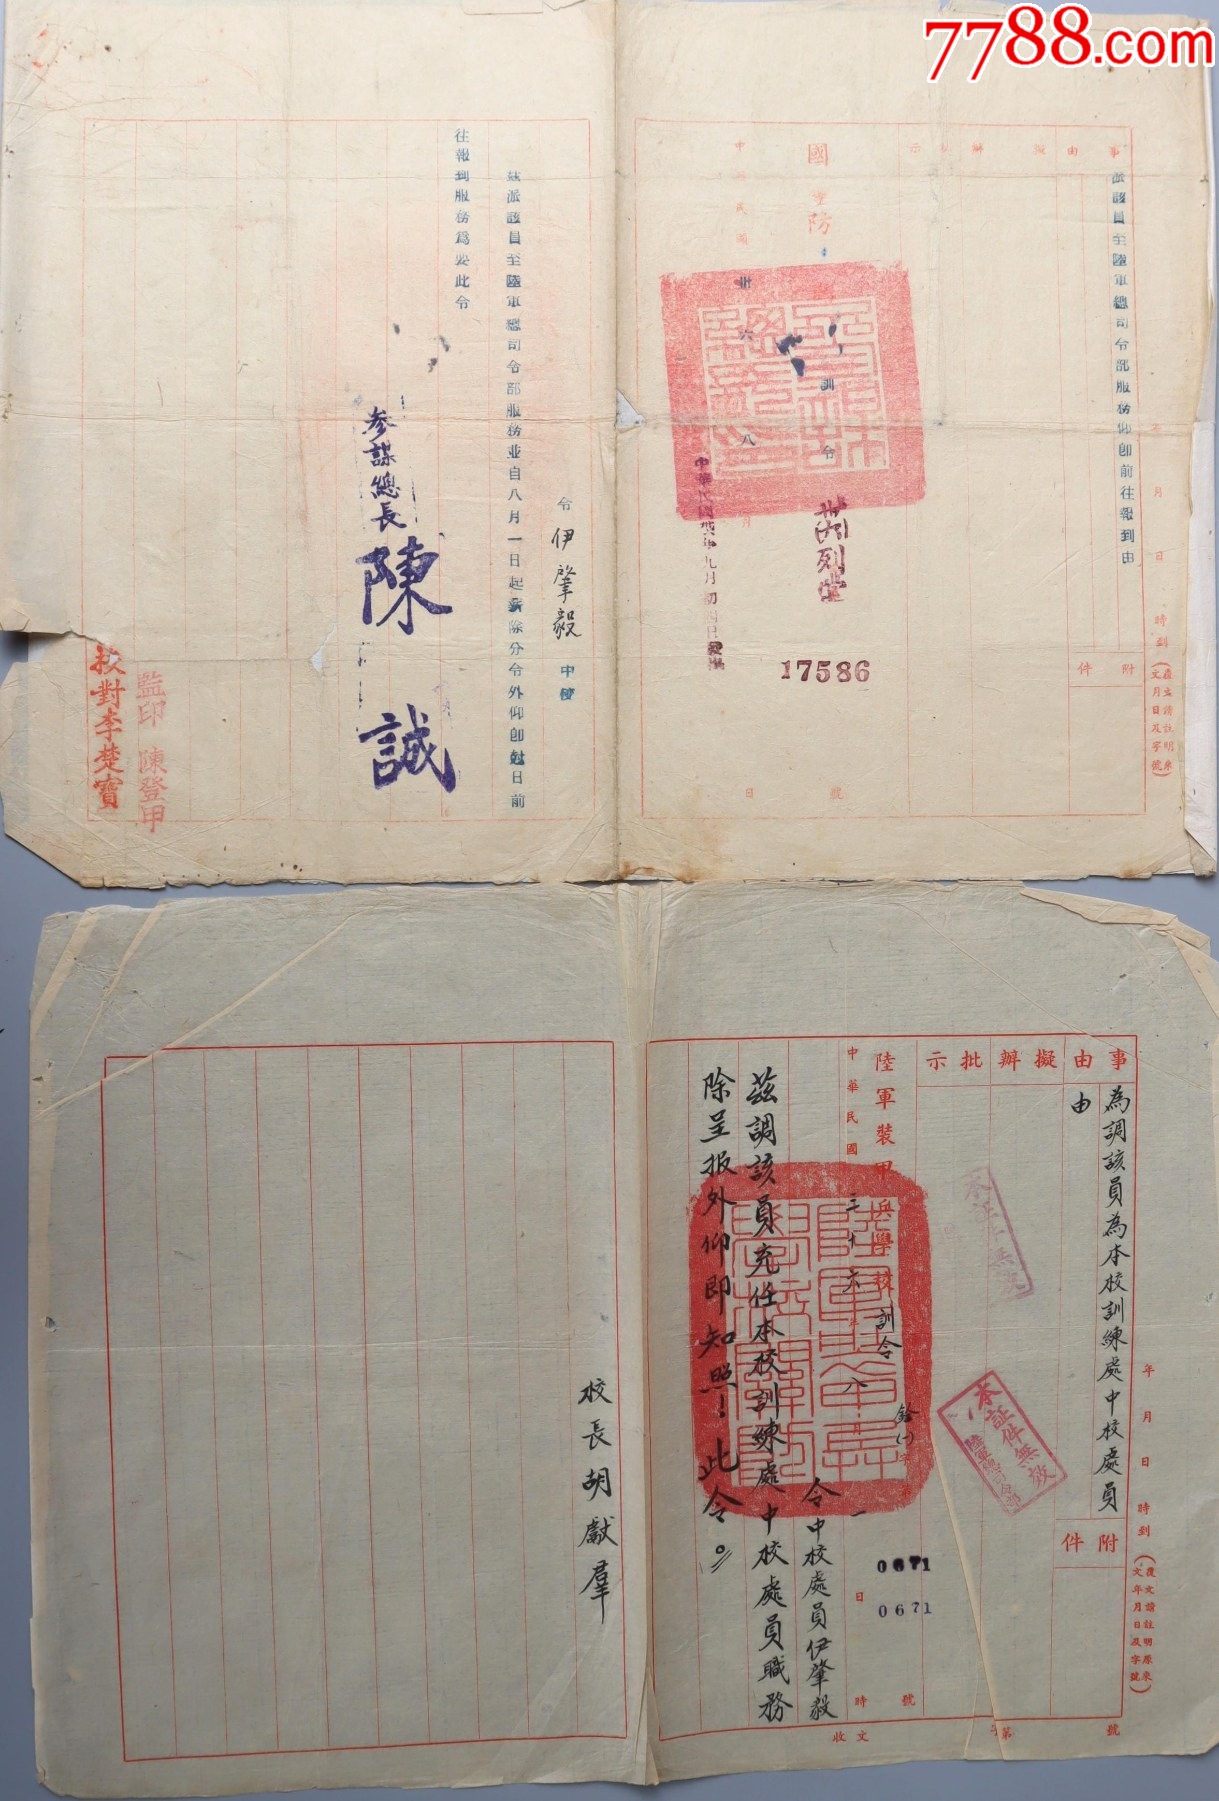 7788.com
事由擬辦批示
派該員至陸軍總司令部服務仰即前往報到由
附件
年月日時到
復文請註明來文月日及字號
國防部
訓令
中華民國卅六年八月日
號
17586
令伊肇毅中校
茲派該員至陸軍總司令部服務並自八月一日起薪除分令外仰即尅日前
往報到服務為要此令
參謀總長陳誠
監印陳登甲
校對李楚寶
事由擬辦批示
為調該員為本校訓練處中校處員
由
附件
年月日時到
復文請註明原來文年月日及字號
本証件無效
陸軍總司令部
陸軍裝甲兵學校訓令
0671
0671
號
中華民國三十六年八月一日
時
收文
字第
號
令中校處員伊肇毅
茲調該員充任本校訓練處中校處員職務
除呈报外仰即知照！此令。
校長胡獻羣